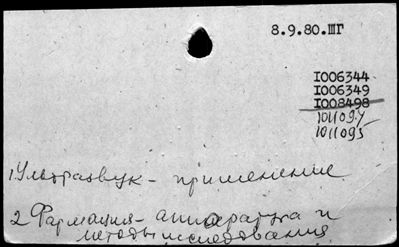 8.9.80.ШГ
I006344
I006349
I008498
1011094
1011093
1. Ультразвук - применение
2. Фармация - аппаратура и
методы исследования